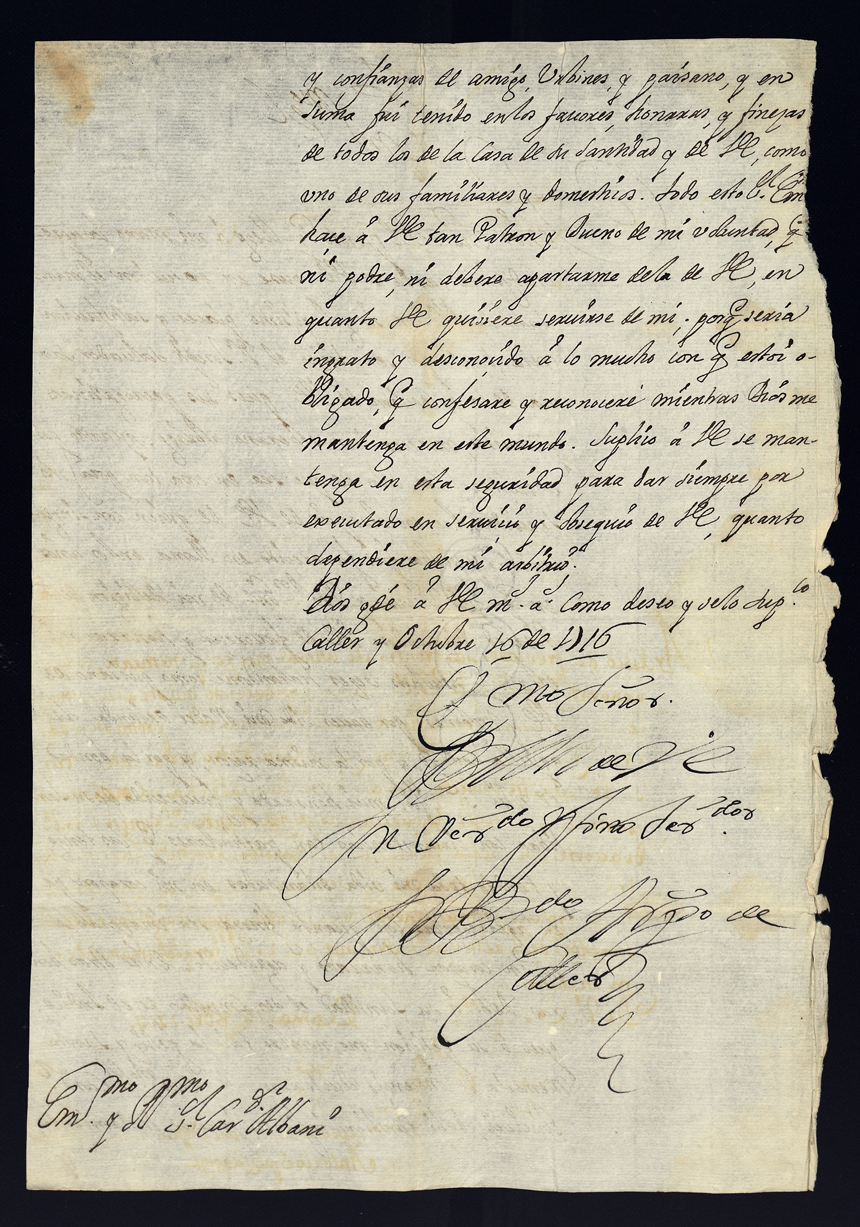 y confianzas de amigo, Vrbines, y paisano, y en
suma fui tenido en los fauores, honrras, y finezas
de todos los de la Casa de su Santidad y de VE, como
vno de sus familiares y domesticos. Todo esto Sr. Em
hace á VE tan Patron y Dueno de mi voluntad, q
ni podre, ni debere apartarme dela de VE, en
quanto VE quisiere seruirse de mi; porq seria
ingrato y desconocido á lo mucho con q estoi o-
bligado, q confesare y reconoceré mientras Dios me
mantenga en este mundo. Suplico á VE se man-
tenga en esta seguridad para dar siempre por
executado en seruicio y obsequio de VE, quanto
dependiere de mi arbitrio.
Dios gde á VE ms. as. como deseo y selo supco.
Caller y Octubre 16 de 1716
Emo Señor.
de VE
Su Verdo y fino Serdor.
Arzpo de
Caller
Emmo. y Rmo Sr. Card. Albani